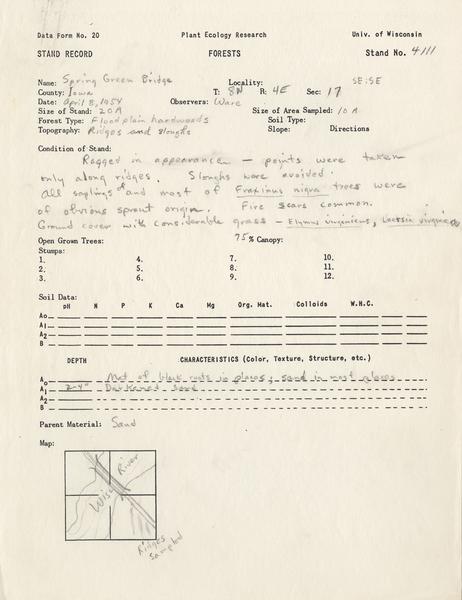 Data Form No. 20 Plant Ecology Research Univ. of Wisconsin
STAND RECORD FORESTS Stand No. 4111
Name: Spring Green Bridge Locality: SE:SE
County: Iowa T: 8N R: 4E Sec: 17
Date: April 8, 1954 Observers: Ware
Size of Stand: 20A Size of Area Sampled: 10 A
Forest Type: Floodplain hardwoods Soil Type:
Topography: Ridges and sloughs Slope: Directions
Condition of Stand:
Ragged in appearance — points were taken
only along ridges. Sloughs were avoided.
All saplings and most of Fraxinus nigra trees were
of obvious sprout origin. Fire scars common.
Ground cover with considerable grass — Elymus virginicus, Leersia virginica
Open Grown Trees: 75% Canopy:
Stumps:
1. 4. 7. 10.
2. 5. 8. 11.
3. 6. 9. 12.
Soil Data:
pH N P K Ca Mg Org. Mat. Colloids W.H.C.
Ao
A1
A2
B
DEPTH CHARACTERISTICS (Color, Texture, Structure, etc.)
Ao Mat of black roots in places; sand in most places
A1 2-4" Darkened sand
A2
B
Parent Material: Sand
Map:
Wisc River
Ridges
Sampled